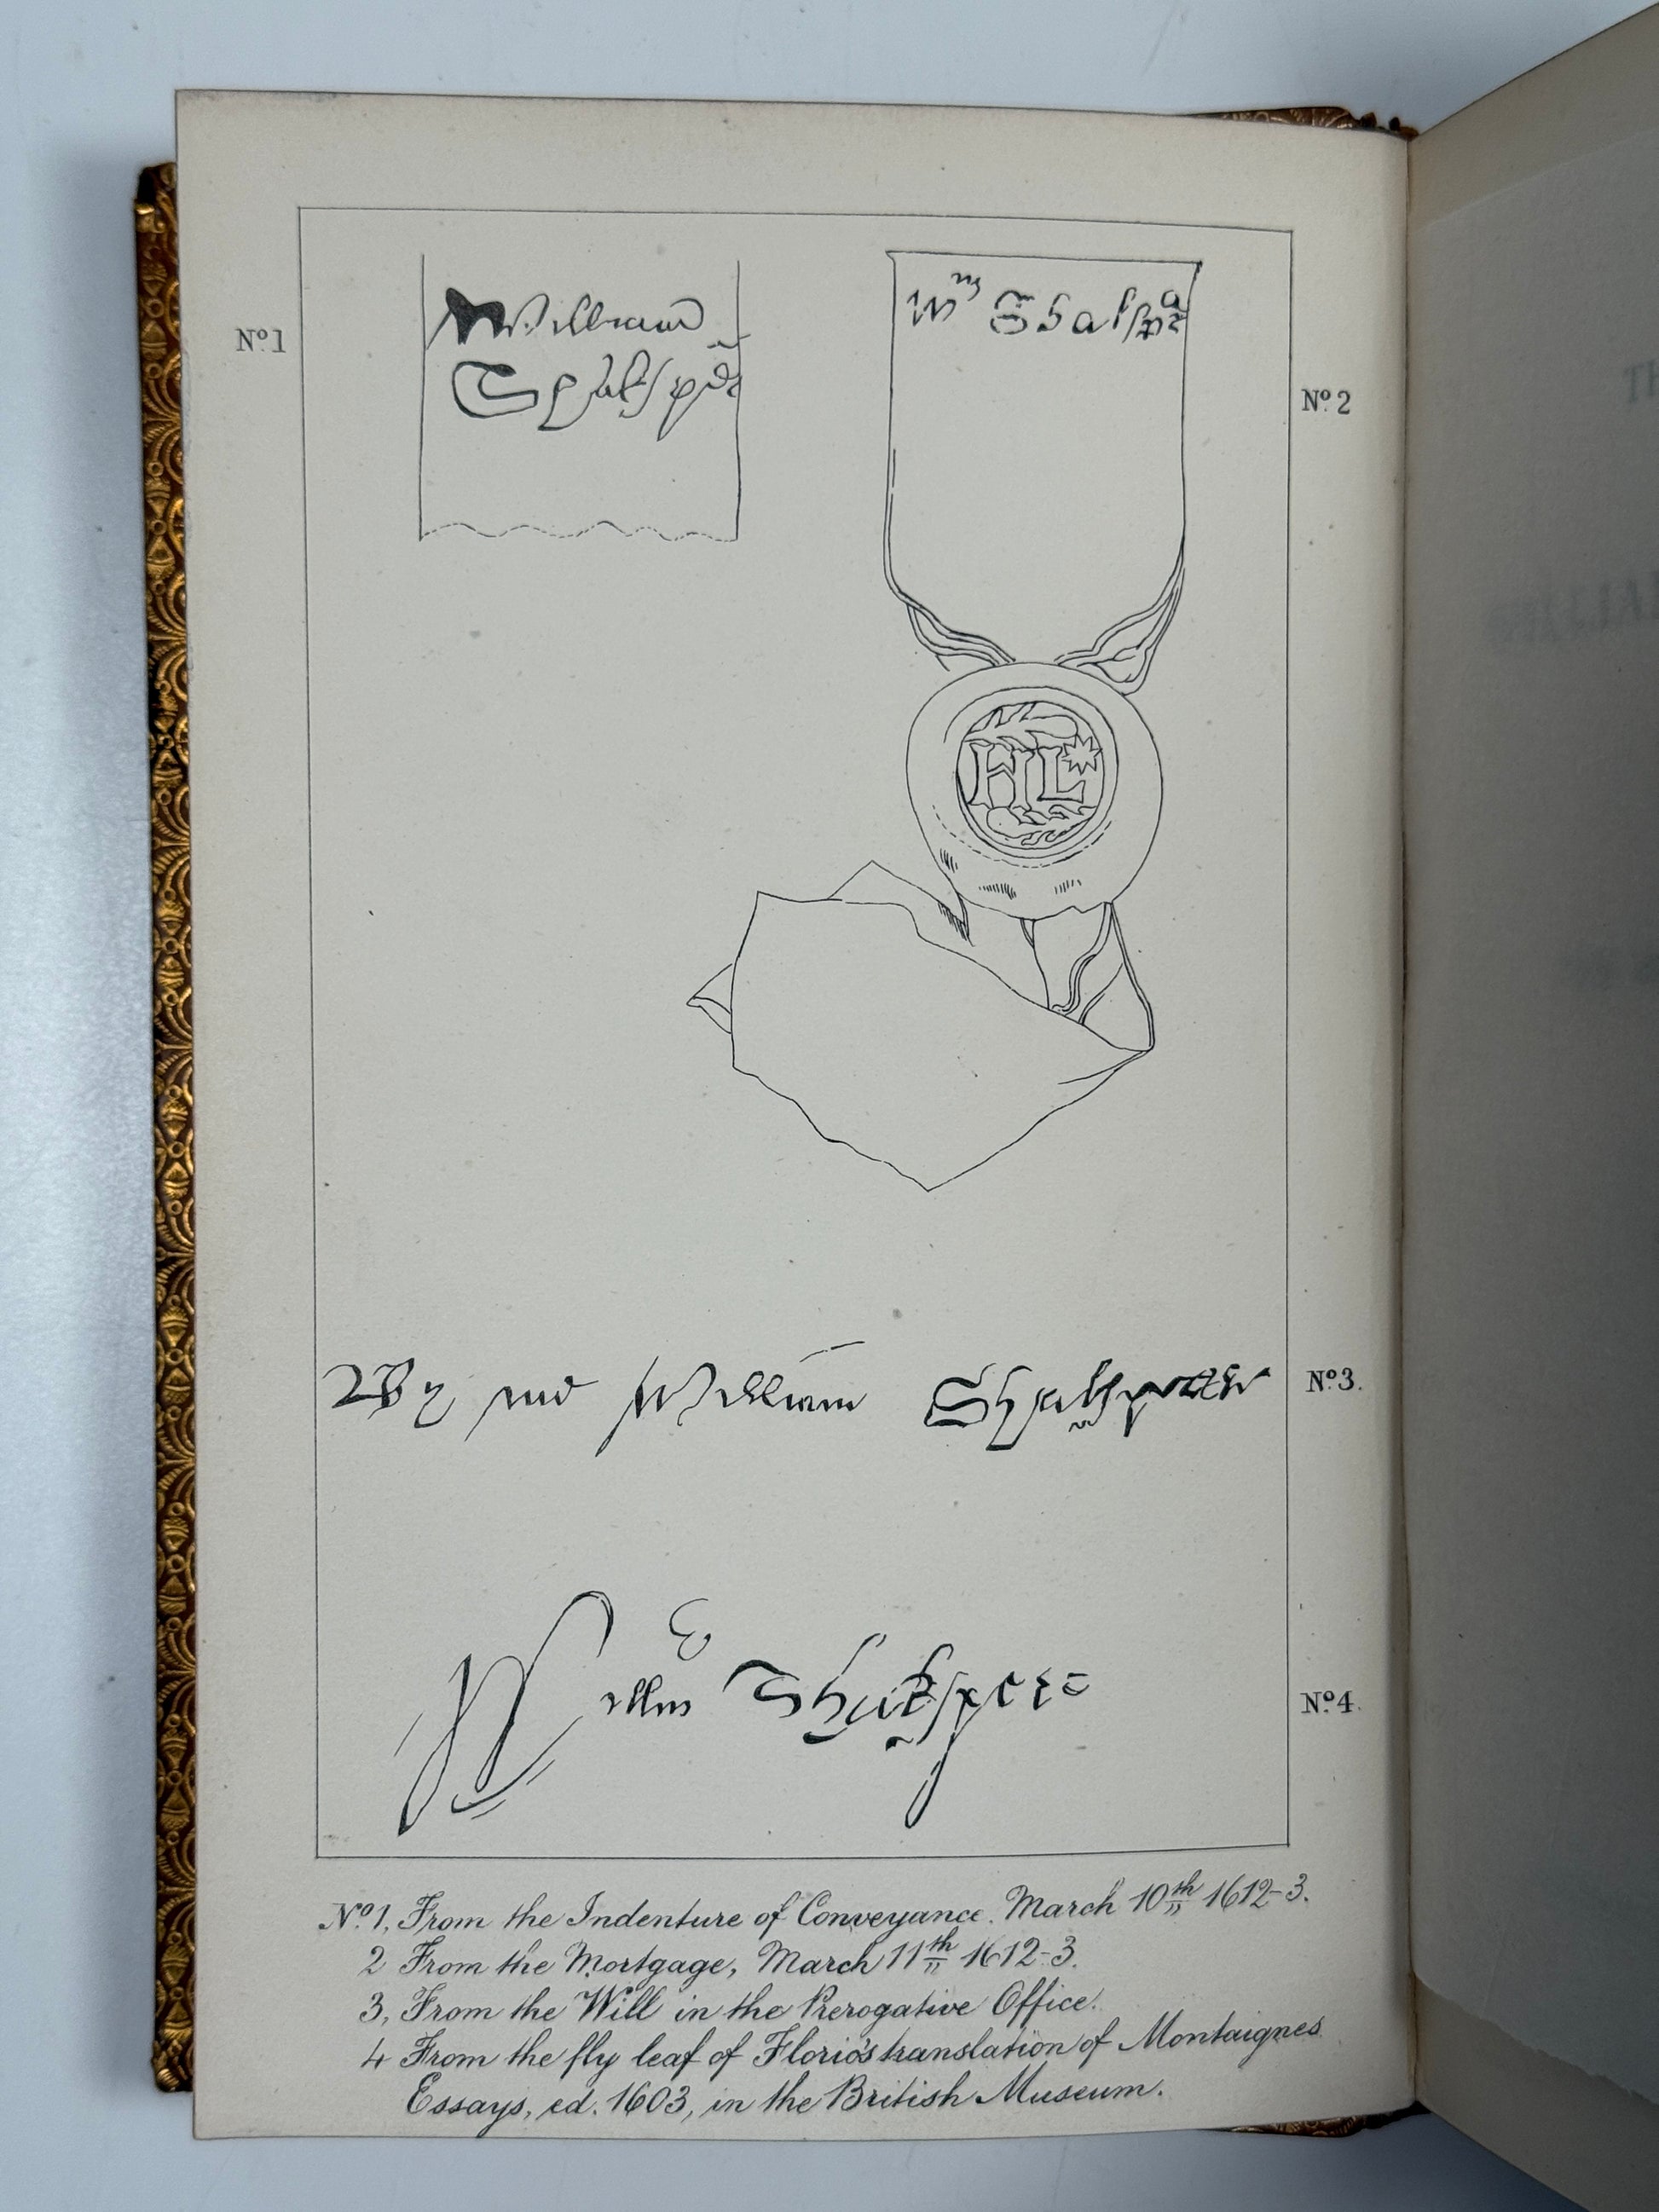 Nº 1
William
Shakspẽr
Wm Shakspea
Nº 2
HL
By me William Shakspeare
Nº 3.
Willm Shakspere
Nº 4.
Nº 1, From the Indenture of Conveyance. March 10th 1612-3.
2 From the Mortgage, March 11th 1612-3.
3, From the Will in the Prerogative Office.
4 From the fly leaf of Florio's translation of Montaignes
Essays, ed. 1603, in the British Museum.